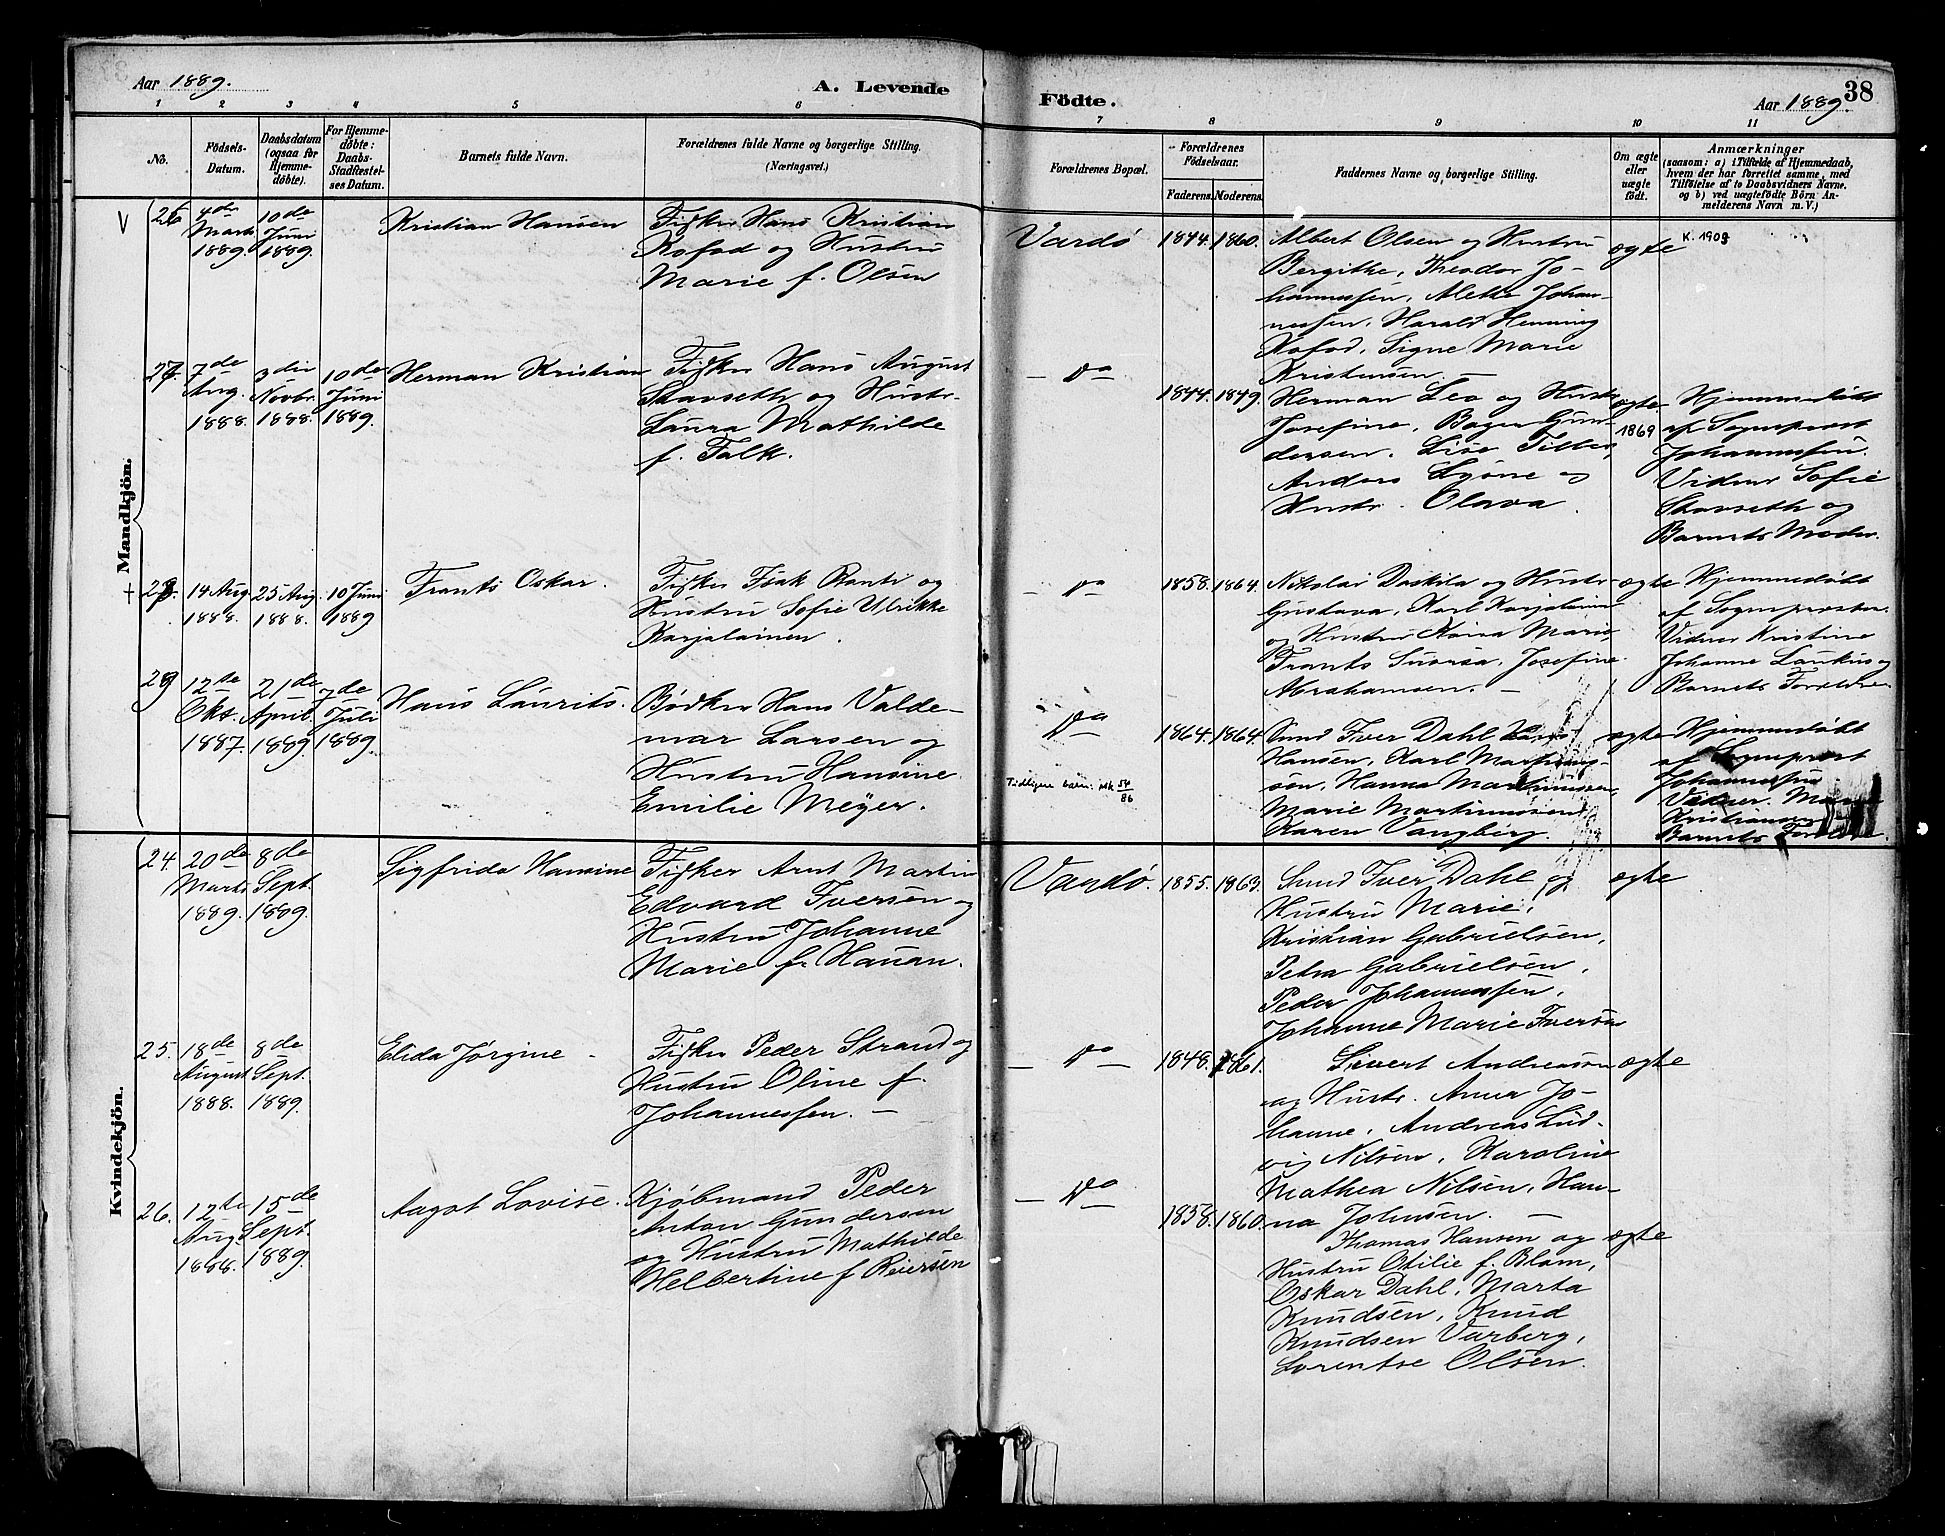 Aar 1889.
A. Levende
Födte.
38
Aar 1889.
1 2 3 4 5 6 7 8 9 10 11
No.
Födsels-
Datum.
Daabsdatum
(ogsaa for
Hjemme-
døbte).
For Hjemme-
døbte:
Daabs-
Stadfæstel-
ses Datum.
Barnets fulde Navn.
Forældrenes fulde Navne og borgerlige Stilling.
(Næringsvei.)
Forældrenes Bopæl.
Forældrenes
Födselsaar.
Faderens. Moderens.
Faddernes Navne og borgerlige Stilling.
Om ægte
eller
uægte
født.
Anmærkninger
(saasom: a) i Tilfælde af Hjemmedaab,
hvem der har forrettet samme, med
Tilföielse af to Daabsvidners Navne,
og b) ved uægtefödte Börn An-
melderens Navn m. V.)
Mandkjön.
V
26
4de
Marts
1889.
10de
Juni
1889.
Kristian Hansen
Fisker Hans Kristian
Kofod og Hustru
Marie f. Olsen
Vardø
1844. 1860.
Albert Olsen og Hustru
Bergithe, Theodor Jo-
hannessen, Alette Johan-
nessen, Harald Henning
Kofod, Signe Marie
Kristensen. —
ægte
K. 1903
27.
7de
Aug.
1888.
3die
Novbr.
1888.
10de
Juni
1889.
Herman Kristian
Fisker Hans August
Stavseth og Hustr.
Laura Mathilde
f. Falk.
— Do
1844. 1849.
Herman Leo og Hustr.
Josefine, Gun-
dersen, Lise
Anders og
Hustr. Olava
ægte
1869
Hjemmedøbt
af Sogneprest
Johannessen.
Vidner Sofie
Stavseth og
Barnets Moder.
+
28.
14 Aug
1888.
25 Aug.
1888.
10 Juni
1889
Frants Oskar.
Fisker Isak og
Hustru Sofie Ulrikke
Karjalainen.
— Do —
1858. 1864.
Nikolai og Hustr.
Gustava, Karl Karjalainen
og Hustru Marie,
Frants Josefine
Abrahamsen. —
ægte
Hjemmedøbt
af Sognepresten.
Vidner Kristine
Johanne og
Barnets Forældre
29
12te
Okt.
1887.
21de
April.
1889.
7de
Juli
1889.
Hans Laurits.
Bødker Hans Valde-
mar Larsen og
Hustru Hansine
Emilie Meyer.
Do
Tidligere barn: Mk 54/86
1864. 1864.
Smed Iver Dahl
Hansen, Karl
Hanna Martinussen
Marie Martinussen
Karen Vangberg.
ægte
Hjemmedøbt
af Sogneprest
Johannessen
Vidner
Kristiansen
Barnets Forældre.
Kvindekjön.
24.
20de
Marts
1889.
8de
Sept.
1889.
Sigfrida Hansine
Fisker Arnt Martin
Edvard Iversen og
Hustru Johanne
Marie f. Hauan.
Vardø.
1855. 1863.
Smed Iver Dahl og
Hustru Marie,
Kristian Gabrielsen,
Petra Gabrielsen,
Peder Johannessen,
Johanne Marie Iversen
ægte
25.
18de
August
1888.
8de
Sept.
1889.
Elida Jørgine —
Fisker Peder Strand og
Hustru Oline f.
Johannessen. —
— Do —
1848. 1861.
Sivert Andreassen
og Hustr. Anna Jo-
hanne, Andreas Lud-
vig Nilsen, Karoline
Mathea Nilsen, Han-
na Johnsen. —
ægte
26.
12te
Aug
1888.
15de
Sept.
1889.
Aagot Lovise.
Kjøbmand Peder
Anton Gundersen
og Hustru Mathilde
Helbertine f Reiersen
— Do
1858. 1860.
Thomas Hansen og
Hustru Otilie f. Blom,
Oskar Dahl, Marta
Knudsen, Knud
Knudsen Varberg,
Lorentse Olsen.
ægte